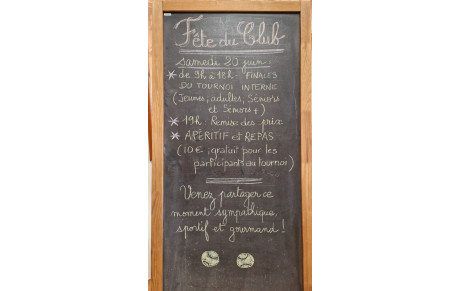 Fête du Club
samedi 20 juin :
* de 9h à 18h - FINALES
DU TOURNOI INTERNE
(Jeunes, adultes, Séniors
et Séniors +)
* 19h. Remise des prix
* APÉRITIF et REPAS
(10€ ; gratuit pour les
participants au tournoi)
Venez partager ce
moment sympathique,
sportif et gourmand !